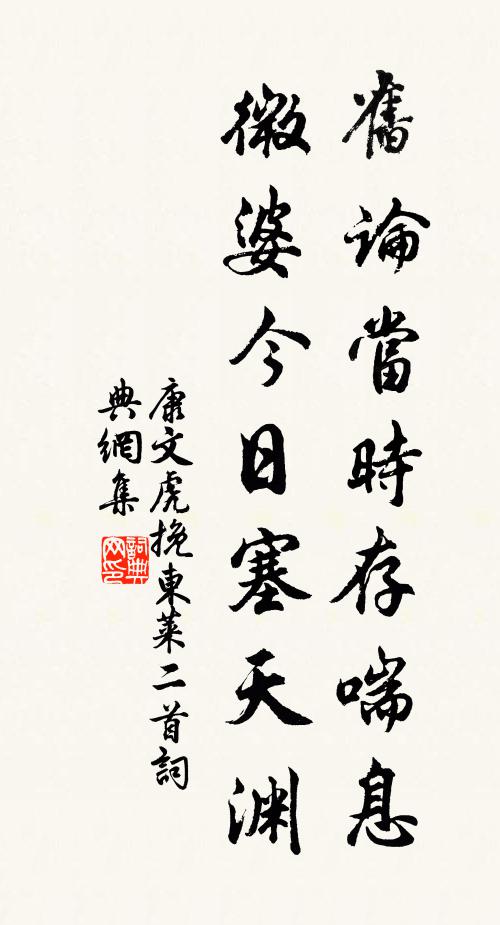 舊論當時存喘息
微婆今日塞天淵
康文虎挽東萊二首詞
典網集
詞典
网印